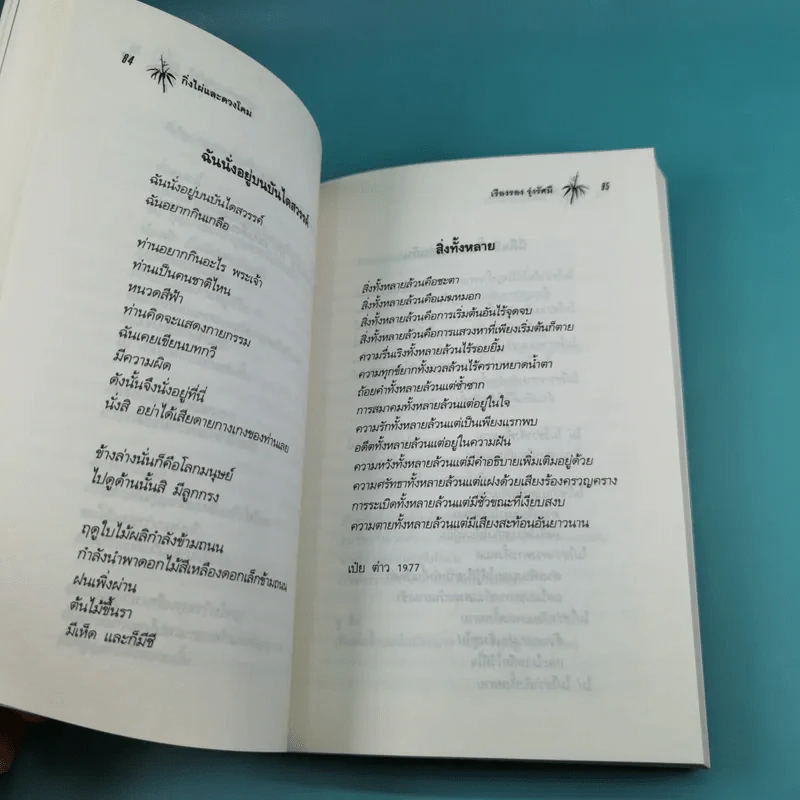 84
กิ่งไผ่และดวงโคม
ฉันนั่งอยู่บนบันไดสวรรค์
ฉันนั่งอยู่บนบันไดสวรรค์
ฉันอยากกินเกลือ
ท่านอยากกินอะไร พระเจ้า
ท่านเป็นคนชาติไหน
หนวดสีฟ้า
ท่านคิดจะแสดงกายกรรม
ฉันเคยเขียนบทกวี
มีความผิด
ดังนั้นจึงนั่งอยู่ที่นี่
นั่งสิ อย่าได้เสียดายกางเกงของท่านเลย
ข้างล่างนั่นก็คือโลกมนุษย์
ไปดูด้านนั้นสิ มีลูกกรง
ฤดูใบไม้ผลิกำลังข้ามถนน
กำลังนำพาดอกไม้สีเหลืองดอกเล็กข้ามถนน
ฝนเพิ่งผ่าน
ต้นไม้ขึ้นรา
มีเห็ด และก็มีชี
เรืองรอง รุ่งรัศมี
85
สิ่งทั้งหลาย
สิ่งทั้งหลายล้วนคือชะตา
สิ่งทั้งหลายล้วนคือเมฆหมอก
สิ่งทั้งหลายล้วนคือการเริ่มต้นอันไร้จุดจบ
สิ่งทั้งหลายล้วนคือการแสวงหาที่เพียงเริ่มต้นก็ตาย
ความรื่นเริงทั้งหลายล้วนไร้รอยยิ้ม
ความทุกข์ยากทั้งมวลล้วนไร้คราบหยาดน้ำตา
ถ้อยคำทั้งหลายล้วนแต่ซ้ำซาก
การสมาคมทั้งหลายล้วนแต่อยู่ในใจ
ความรักทั้งหลายล้วนแต่เป็นเพียงแรกพบ
อดีตทั้งหลายล้วนแต่อยู่ในความฝัน
ความหวังทั้งหลายล้วนแต่มีคำอธิบายเพิ่มเติมอยู่ด้วย
ความศรัทธาทั้งหลายล้วนแต่แฝงด้วยเสียงร้องครวญคราง
การระเบิดทั้งหลายล้วนแต่มีชั่วขณะที่เงียบสงบ
ความตายทั้งหลายล้วนแต่มีเสียงสะท้อนอันยาวนาน
เป่ย ต่าว 1977